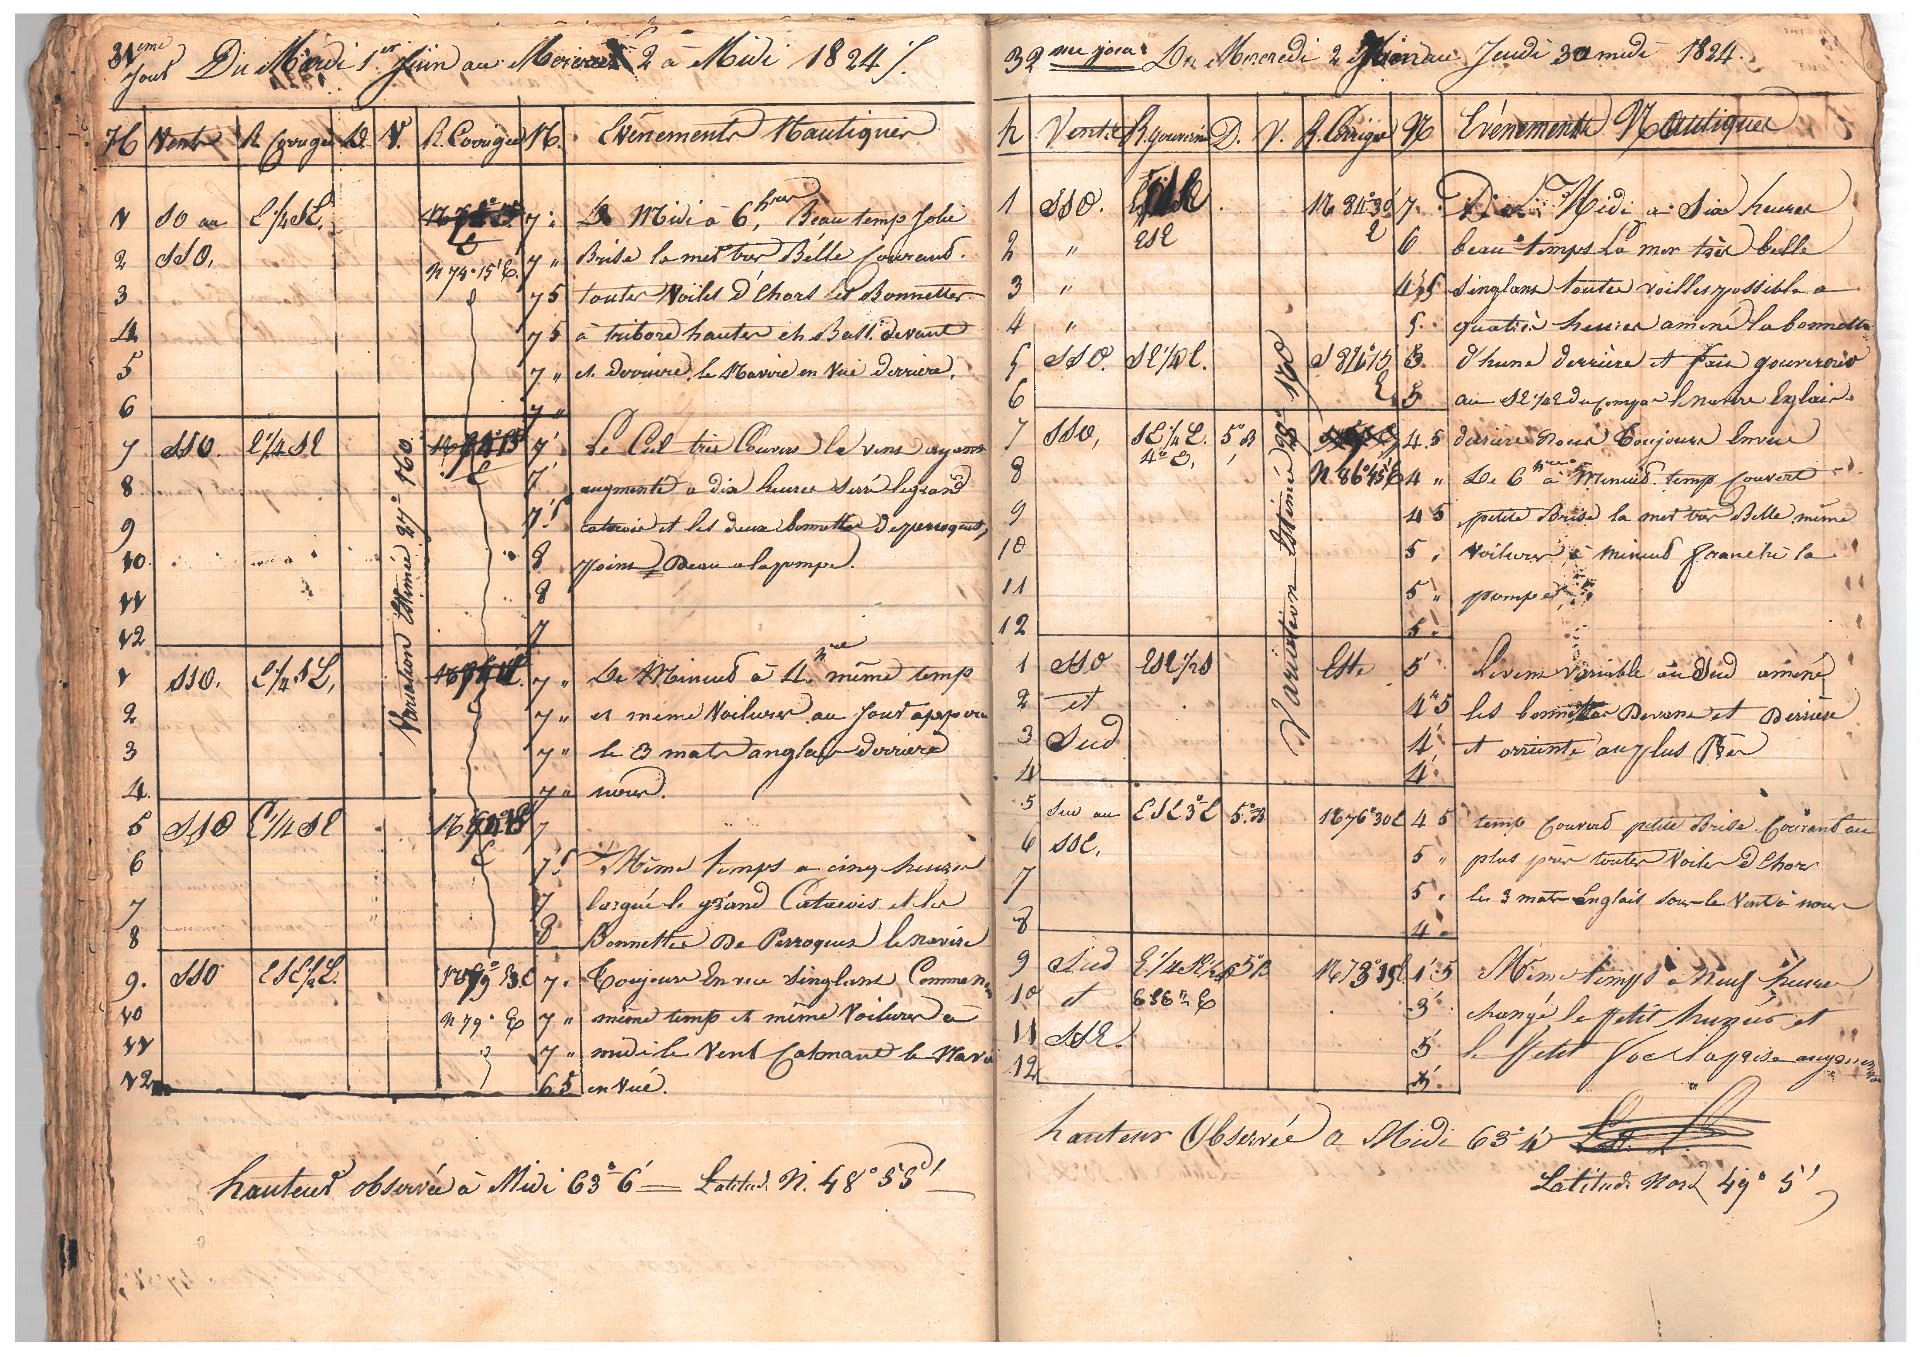 31eme Jour Du Mardi 1er Juin au Mercredi 2 à Midi 1824
H Vents R Corrigée D. V. R. Corrigée N. Evênements Nautiques
1 SO au E 1/4 SE. 7 De Midi à 6 hres Beau temp Jolie
2 SSO. N 74° 15' E. 7 " Brise la mer tres Bélle Courant
3 7 5 toutes Voiles d'Ehors les Bonnettes
4 7 5 à tribord hautes et Bass. devant
5 7 " et derriere, le Navire en Vue derriere,
6 7 "
7 SSO. E 1/4 SE 7 Le Ciel tres Couvers le vens ayans
8 7 augmenté a dix heures Serré le grand
9 7 5 catacois et les deux bonnettes de perroquet,
10 8 point D'eau a la pompe.
11 8
12 7
Variation Estimée 27° NO.
1 SSO. E 1/4 SE. 7 " De Minuit à 4 hres même temp
2 7 " et même Voilures au Jour aperçu
3 7 " le 3 mats anglais derriere
4 7 " nous.
5 SSO E 1/4 SE 7
6 7 5 Même temps a cinq heures
7 7 largué le grand Catacois et les
8 8 Bonnettes De Perroques le navire
9 SSO ESE 1/2 E. 7 Toujours En vue Singlans Comme
10 N 79° E 7 " même temp et même Voilures à
11 7 " midi le Vent Calmant le Navire
12 6 5 en Vué.
hauteur observée à Midi 63° 6' = Latitud. N. 48° 55'
32me jour Du Mercredi 2 Juin au Jeudi 3 a midi 1824.
h Vents R. gouvernée D. V. R. Corrigée N Evénements Nautiques
1 SSO. N 84° 30' E 7 De Midi a Six heures
2 " ESE 6 beau temps La mer très belle
3 " 4 5 Singlans toutes voilles possible a
4 " 5 quatres heures amené la bonnette
5 SSO. SE 1/4 E. 5 d'hune derrière et fais gouverner
6 5 au SE 1/4 E du Compas le navire Anglais
7 SSO. SE 1/4 E. 4° E. 5° B N 86° 45' E 4 5 derrière nous Toujours Envue
8 4 " De 6 hres à Minuit temp Couvert
9 4 5 petite Brise la mer tres Belle même
10 5 Voilures à minuit franchi la
11 5 " pompe
12 5
Variation Estimée 28° NO
1 SSO ESE 1/2 S Est. 5 Levens variable au Sud amené
2 et 4 5 les bonnettes Devans et Derriere
3 Sud 4 et orriente au plus Près
4 4
5 Sud au ESE 3° E 5° B N 76° 30' E 4 5 temp Couvert petite Brise Courant au
6 SSE. 5 " plus près toutes Voiles d'Ehors
7 5 les 3 mats Anglais sous le Vent à nous
8 4
9 Sud 5° B 4 5 Même temps à neuf heures
10 et 3 changé le Petit hunier et
11 SSE. 5 le Petit Foc
12
hauteur Observée a Midi 63° 4'
Latitude Nord 49° 5'